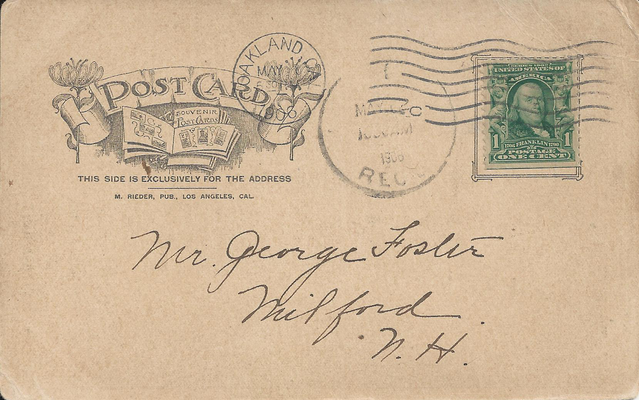 POST CARD
SOUVENIR
POST CARDS
THIS SIDE IS EXCLUSIVELY FOR THE ADDRESS
M. RIEDER, PUB., LOS ANGELES, CAL.
OAKLAND
MAY
1906
1906
REC'D
UNITED STATES OF
AMERICA
1 FRANKLIN 1
POSTAGE
ONE CENT
Mr. George Foster
Milford
N. H.